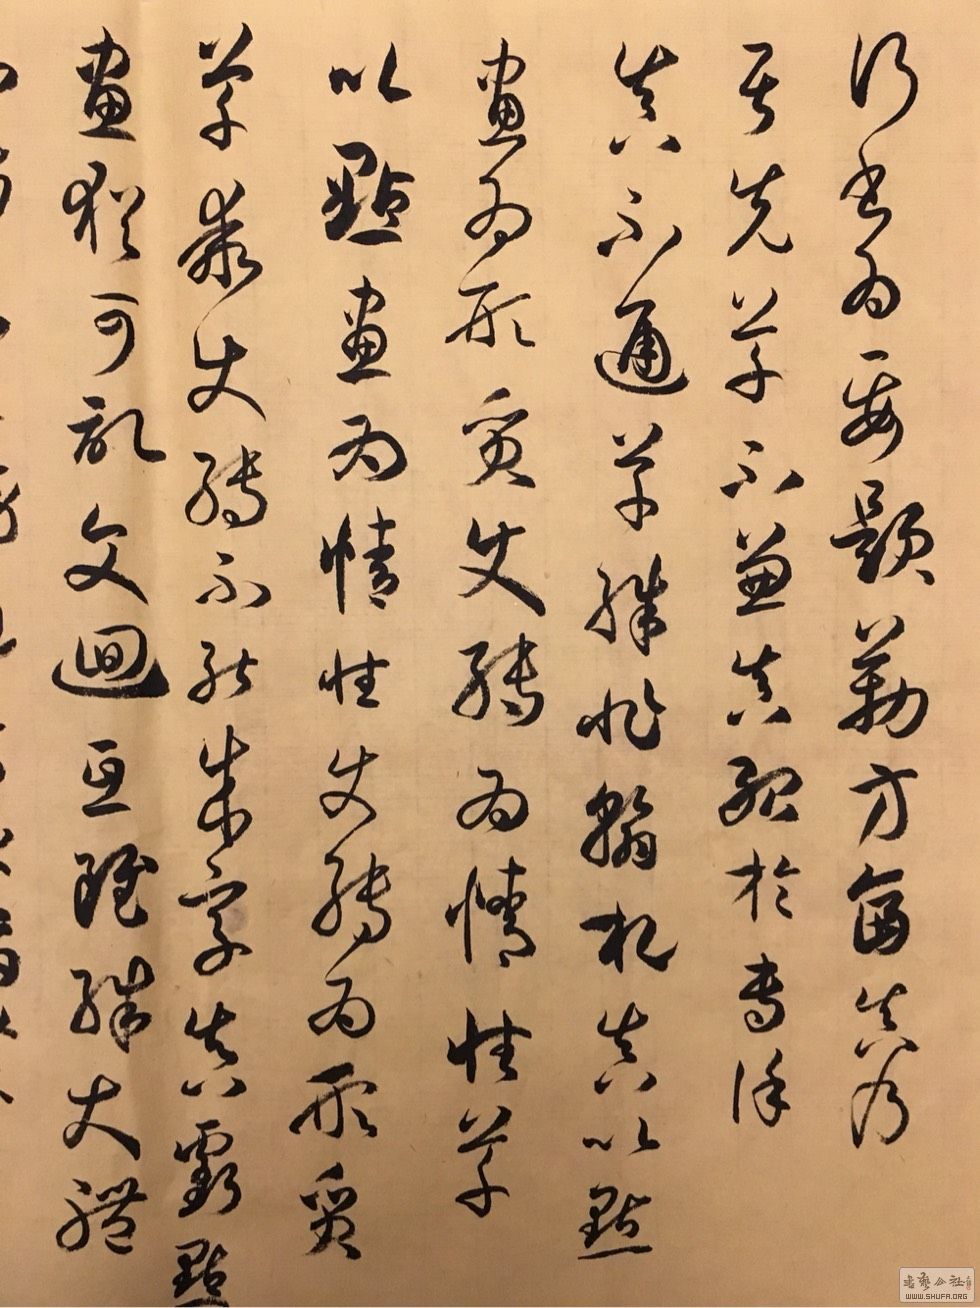 行書為要題勒方畐真乃
居先草不兼真殆於專謹
真不通草殊非翰札真以點
畫為形質使轉為情性草
以點畫為情性使轉為形質
草乖使轉不能成字真虧點
畫猶可記文迴互雖殊大體
書藝公社
WWW.SHUFA.ORG